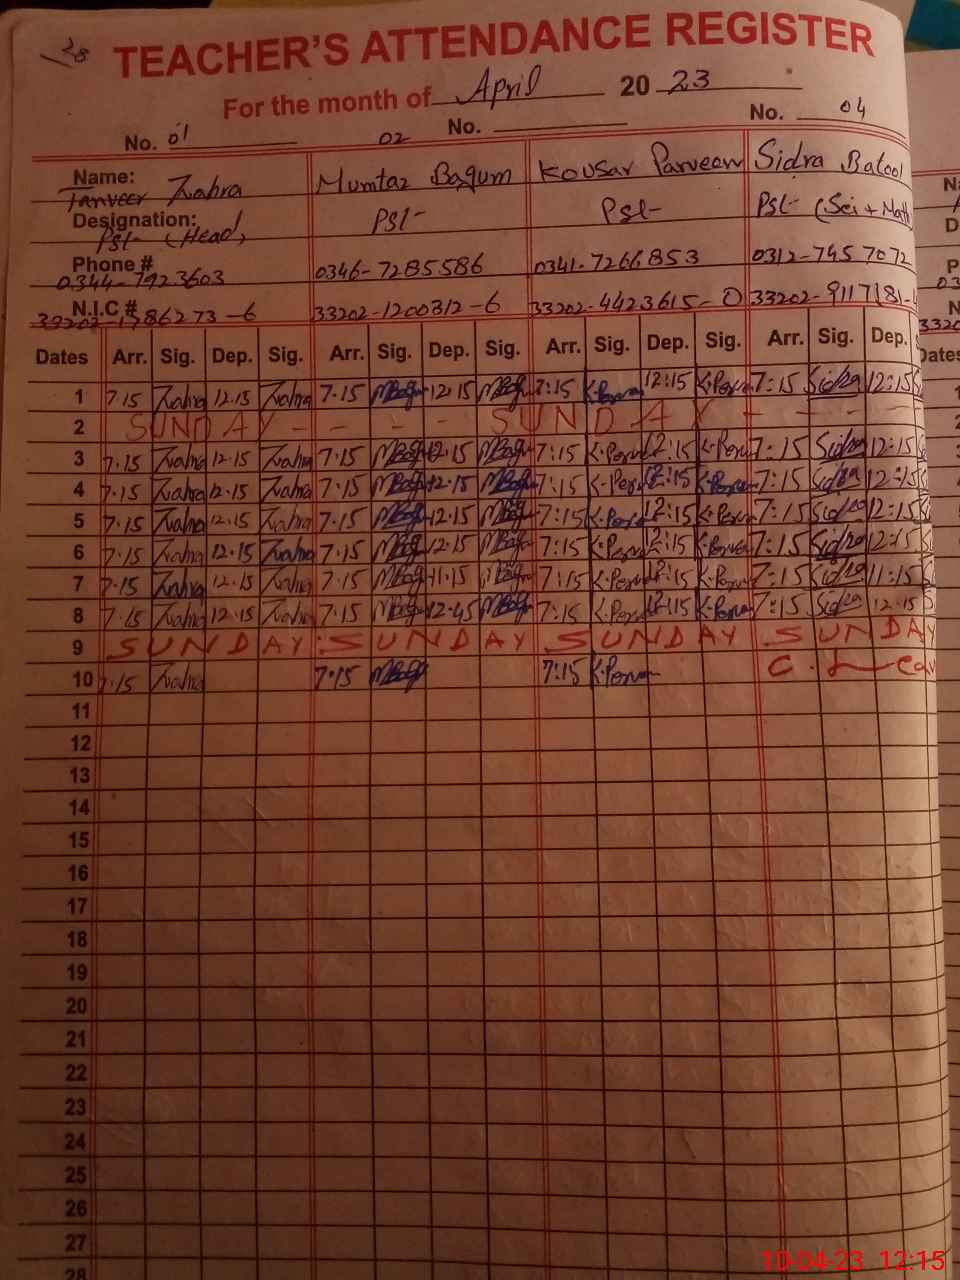 28
TEACHER'S ATTENDANCE REGISTER
For the month of April 20 23
No. 01 02 No. No. 04
Name: Tanveer Zahra Mumtaz Bagum Kousar Parveen Sidra Batool
Designation: Pst- (Head) Pst- Pst- Pst- (Sci + Math
Phone # 0344-7923603 0346-7285586 0341-7266853 0312-745 7072
N.I.C.# 33202-1786273-6 33202-1200312-6 33202-4423615-0 33202-9117181-
Dates Arr. Sig. Dep. Sig. Arr. Sig. Dep. Sig. Arr. Sig. Dep. Sig. Arr. Sig. Dep.
1 7.15 Zahra 12.15 Zahra 7.15 MBag 12.15 MBag 7:15 K.Perveen 12:15 K.Perveen 7:15 Sidra 12:15
2 SUNDAY - - - - SUNDAY - - - -
3 7.15 Zahra 12.15 Zahra 7.15 MBag 12.15 MBag 7:15 K.Perveen 12:15 K.Perveen 7:15 Sidra 12:15
4 7.15 Zahra 12.15 Zahra 7.15 MBag 12.15 MBag 7:15 K.Perveen 12:15 K.Perveen 7:15 Sidra 12:15
5 7.15 Zahra 12.15 Zahra 7.15 MBag 12.15 MBag 7:15 K.Perveen 12:15 K.Perveen 7:15 Sidra 12:15
6 7.15 Zahra 12.15 Zahra 7.15 MBag 12.15 MBag 7:15 K.Perveen 12:15 K.Perveen 7:15 Sidra 12:15
7 7.15 Zahra 12.15 Zahra 7.15 MBag 11.15 MBag 7:15 K.Perveen 12:15 K.Perveen 7:15 Sidra 11:15
8 7.15 Zahra 12.15 Zahra 7.15 MBag 12.45 MBag 7:15 K.Perveen 12:15 K.Perveen 7:15 Sidra 12.15
9 SUNDAY SUNDAY SUNDAY SUNDAY
10 7.15 Zahra 7.15 MBag 7:15 K.Perveen C. Leav
11
12
13
14
15
16
17
18
19
20
21
22
23
24
25
26
27
28
10-04-23 12:15